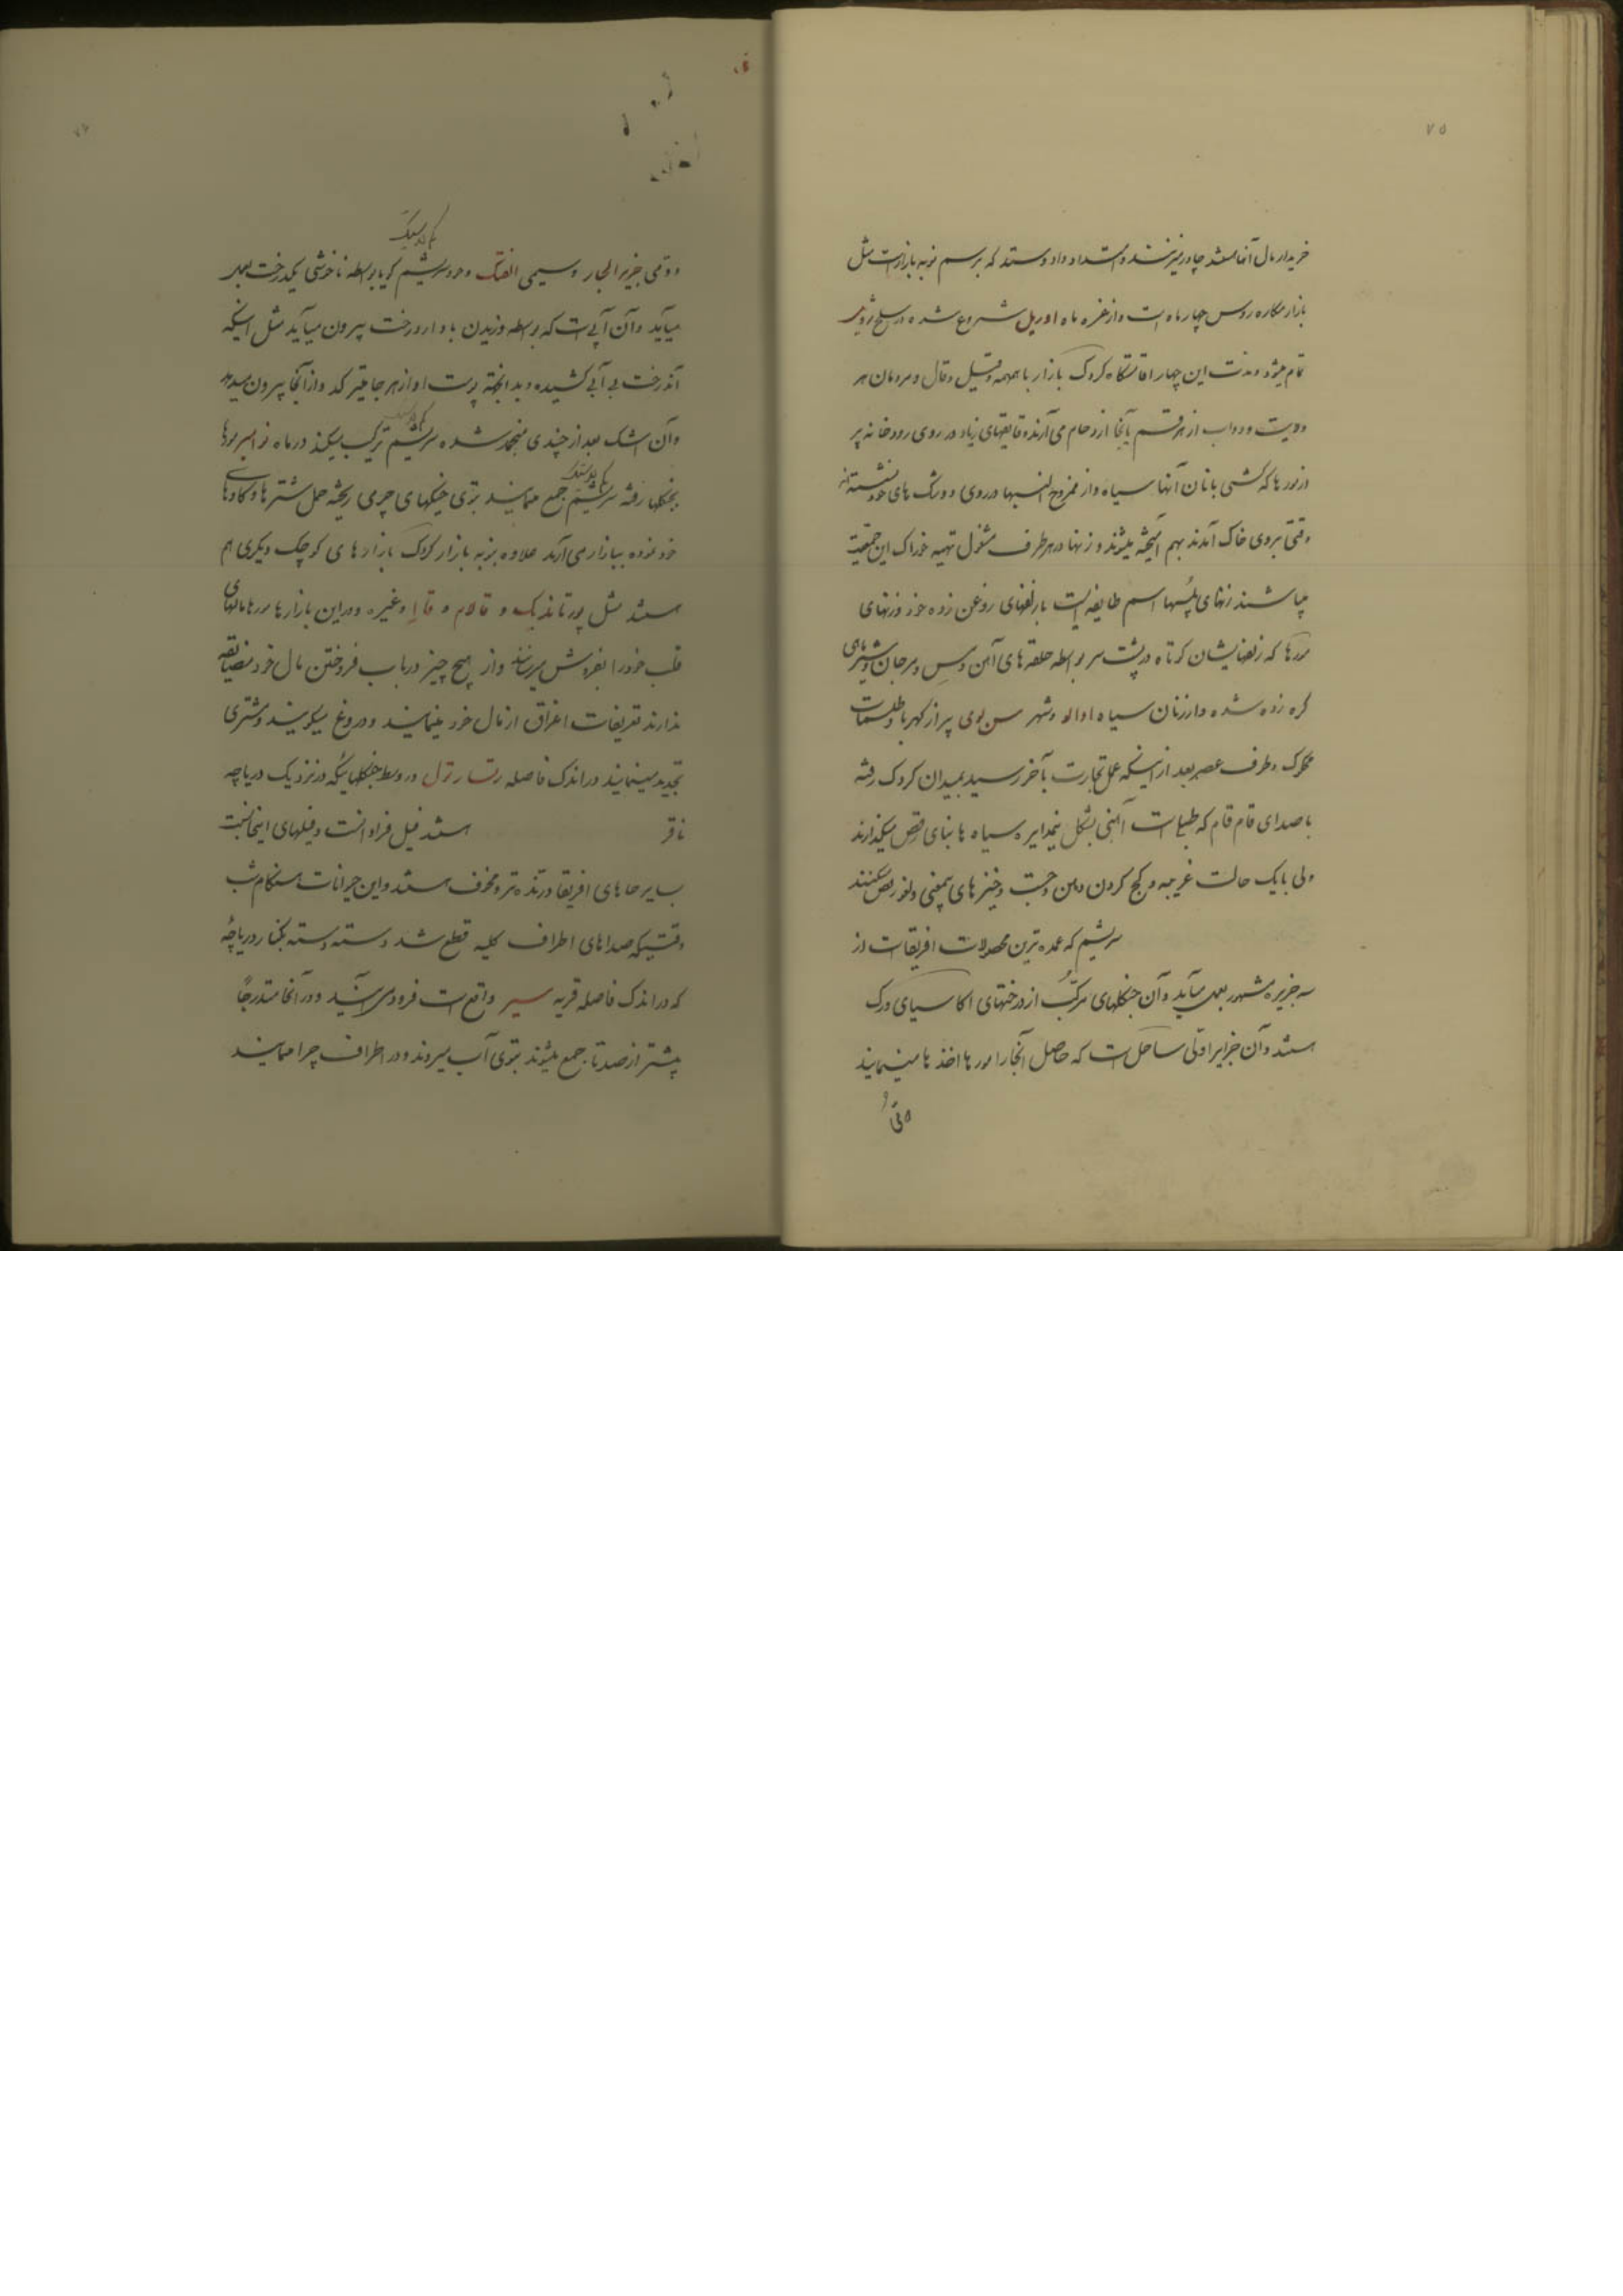 ۷۵
خریدار مال آنها هستند چادر میزنند و امتداد داد و ستد که برسم نوبه بازار است مثل
بازار مکاره روس چهار ماه است و از غره ماه اوریل شروع شده در سلخ ژویه
تمام میشود و مدت این چهار ماه کروک بازار با همهمه و قیل و قال و مردمان هر
ولایت و دواب از هر قسم بآنجا ازدحام می آرند و قایقهای زیاد در روی رودخانه پر
از مورها که کشتی بانان آنها سیاه و از در روی دورنگ های خود نشسته اند
وقتی بروی خاک آمدند بهم آمیخته میشوند و زنها در هر طرف مشغول تهیه خوراک این جمعیت
میباشند زنهای پلسها اسم طایفه ایست با زلفهای روغن زده خود و زنهای
مورها که زلفهایشان کوتاه در پشت سر بواسطه حلقه های آهن و مس و مرجان و شیرماهی
گره زده شده و از زنان سیاه اوالو و شهر سن لوی پر از کهربا و طلسمات
کروک و طرف عصر بعد از اینکه عمل تجارت بآخر رسید بمیدان کروک رفته
با صدای قام قام که طبل است آهنی بشکل نیمدایره سیاه ها بنای رقص میگذارند
ولی با یک حالت غریبه و کج کردن دهن و جست و خیزهای بیمعنی و لغو رقص میکنند
سریشم که عمده ترین محصولات افریقا است از
سه جزیره مشهور بعمل میآید و آن جنگلهای مرکب از درختهای اکاسیای درک
هستند و آن جزایر اولی ساحل است که حاصل آنجا را مورها اخذ مینمایند
دوّمی
کم درسنگ
دومی جزیره الحبار و سیمی الفتاک وجود سریشم گویا بواسطه ناخوشی یکدرخت بعمل
میآید و آن آبی است که بواسطه وزیدن باد از درخت بیرون میآید مثل اینکه
آندرخت بی آبی کشیده و بدانجهة پوست او از هر جا میترکد و از آنجا بیرون میدهد
و آن اشک بعد از چندی منجمد شده سریشم ترکیب میکند در ماه نوامبر مورها
بجنگلها رفته سریشم جمع مینمایند توی خیکهای چرمی ریخته حمل شترها و گاوهای
خود نموده ببازار می آرند علاوه بر نوبه بازار کروک بازارهای کوچک دیگری هم
هستند مثل پورتاندیک و قالام و قاا و غیره و در این بازارها مورها مالهای
قلب خود را بفروش میرسانند و از هیچ چیز در باب فروختن مال خود مضایقه
ندارند تعریفات اغراق از مال خود مینمایند و دروغ میگویند و مشتری
تجدید مینمایند در اندک فاصله ریشارتول در وسط جنگلهائیکه در نزدیک دریاچه
ناقر هستند فیل فراوانست و فیلهای اینجا نسبت
بسایر جاهای افریقا درنده تر و مخوف هستند و این حیوانات هنگام شب
وقتیکه صداهای اطراف کلیه قطع شد دسته دسته بکنار دریاچهٔ
که در اندک فاصله قریه سیر واقع است فرود می آیند و در آنجا متدرجاً
بیشتر از صد تا جمع میشوند بتوی آب میروند و در اطراف چرا مینمایند